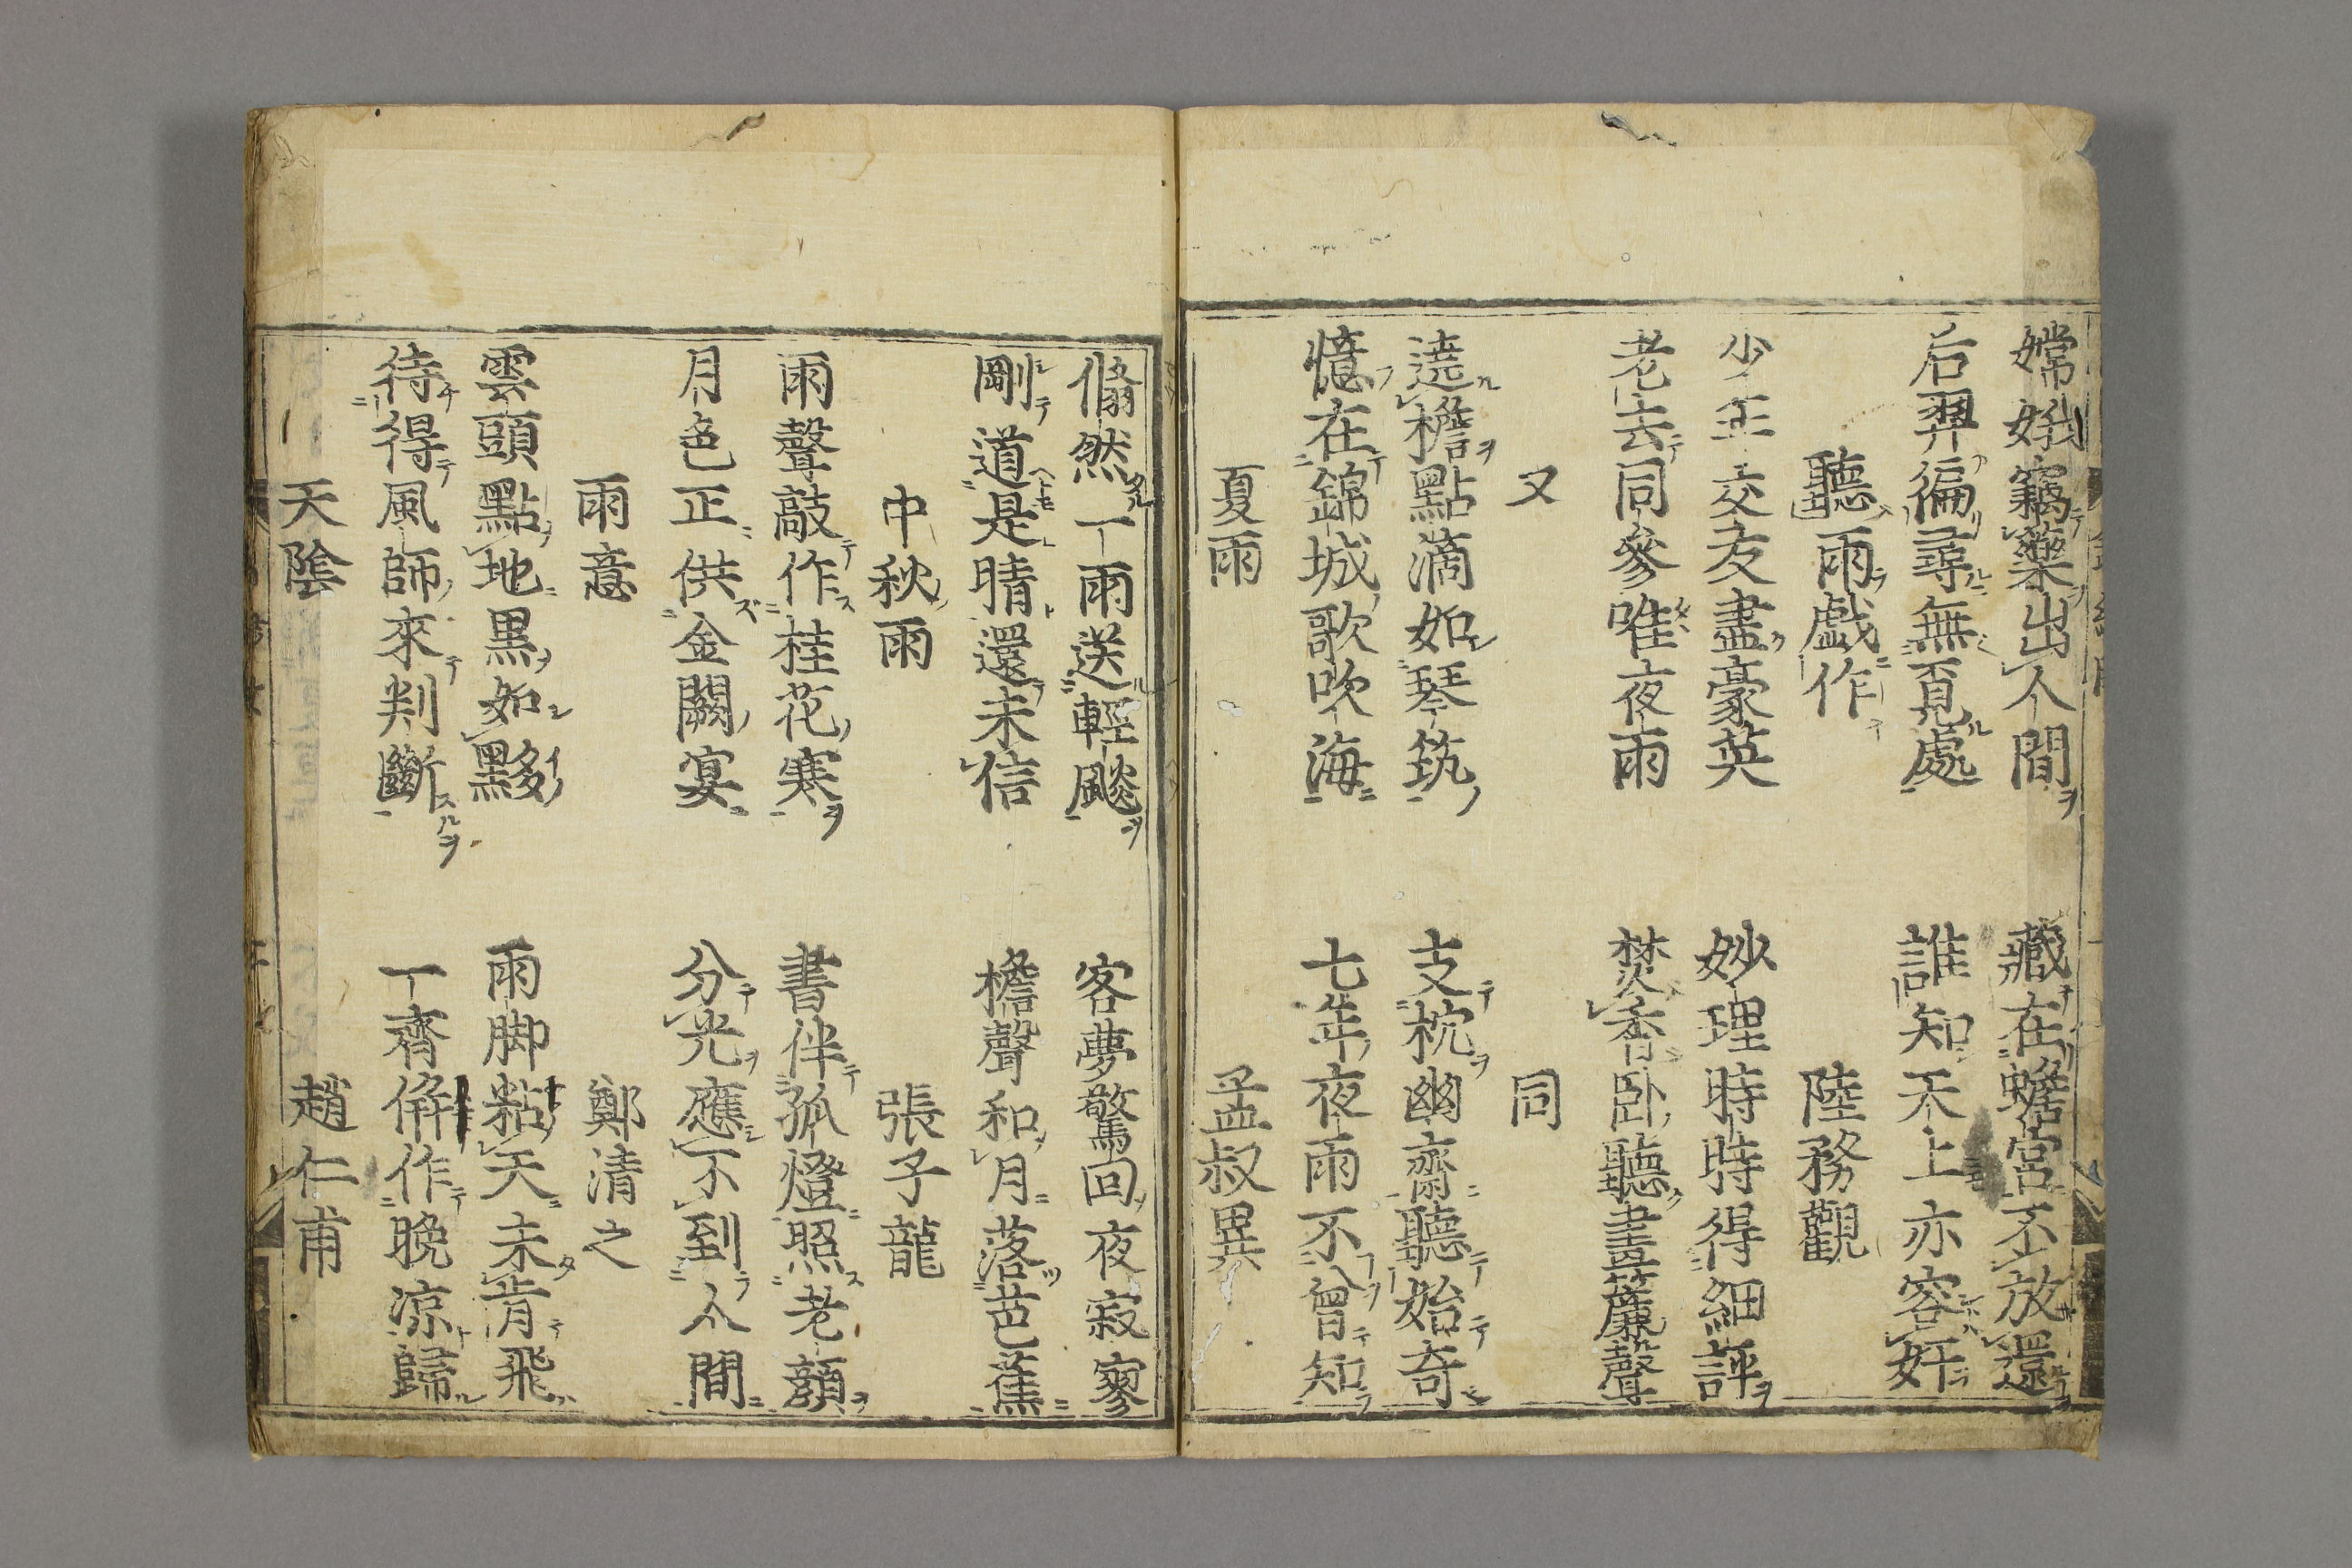 嫦娥竊藥出人間　藏在蟾宮不放還
后羿徧尋無覔處　誰知天上亦容奸
聽雨戯作　陸務觀
少年交友盡豪英　妙理時時得細評
老去同參唯夜雨　焚香卧聽畫簾聲
又　同
遶檐點滴如琴筑　支枕幽齋聽始奇
憶在錦城歌吹海　七年夜雨不曾知
夏雨　孟叔異
翛然一雨送輕颷　客夢驚回夜寂寥
剛道是晴還未信　檐聲和月落芭蕉
中秋雨　張子龍
雨聲敲作桂花寒　書伴孤燈照老顔
月色正供金闕宴　分光應不到人間
雨意　鄭清之
雲頭點地黒如黟　雨脚粘天未肯飛
待得風師來判斷　一齊併作晩凉歸
天陰　趙仁甫